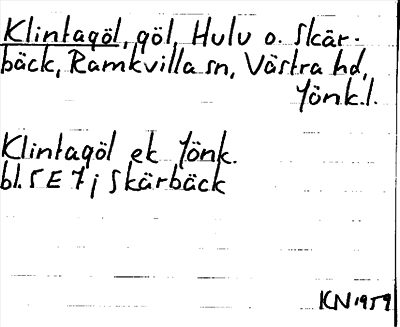 Klintagöl, göl, Hulu o. Skär-
bäck, Ramkvilla sn, Västra hd,
Jönk.l.
Klintagöl ek Jönk.
bl. 5 E 7 j Skärbäck
KN 1959